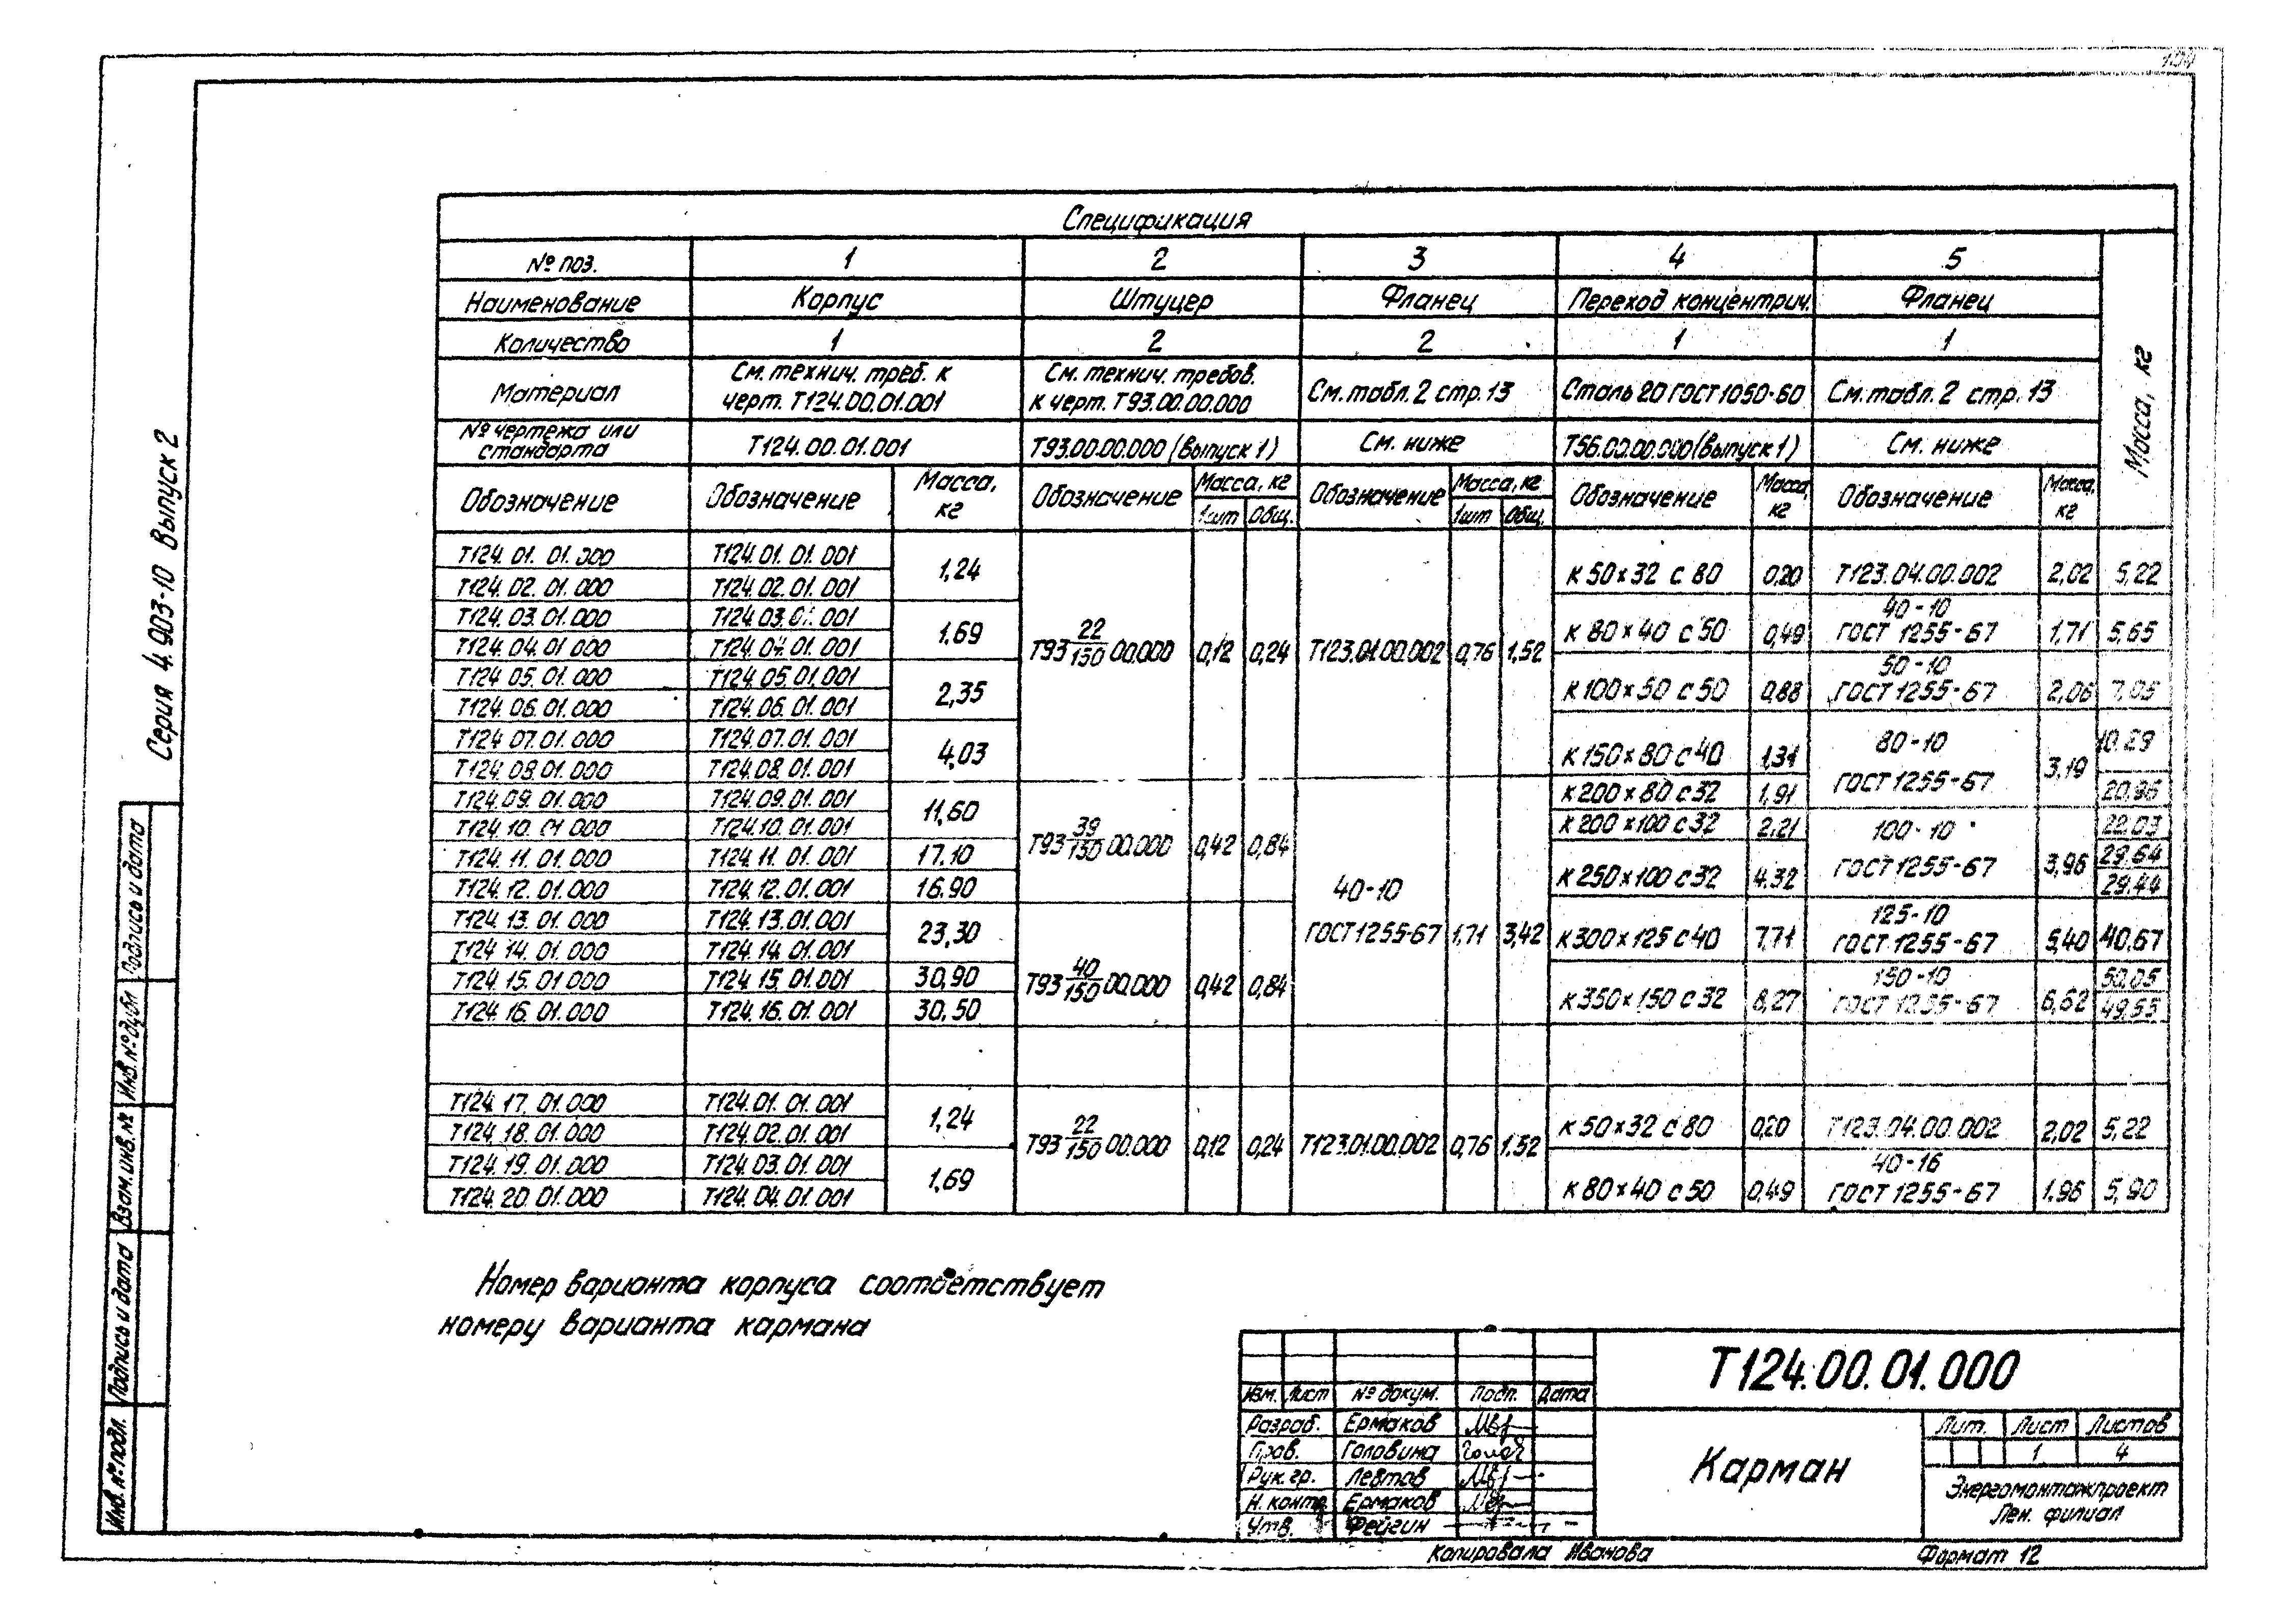 104
Серия 4.903-10 Выпуск 2
Спецификация
№ поз. 1 2 3 4 5 Масса, кг
Наименование Корпус Штуцер Фланец Переход концентрич. Фланец
Количество 1 2 2 1 1
Материал См. технич. треб. к черт. Т124.00.01.001 См. технич. требов. к черт. Т93.00.00.000 См. табл. 2 стр. 13 Сталь 20 ГОСТ 1050-60 См. табл. 2 стр. 13
№ чертежа или стандарта Т124.00.01.001 Т93.00.00.000 (Выпуск 1) См. ниже Т56.00.00.000 (Выпуск 1) См. ниже
Обозначение Обозначение Масса, кг Обозначение Масса, кг 1шт Общ. Обозначение Масса, кг 1шт Общ. Обозначение Масса, кг Обозначение Масса, кг
Т124.01.01.000 Т124.01.01.001 1,24 Т93 22/150 00.000 0,12 0,24 Т123.01.00.002 0,76 1,52 К 50×32 с 80 0,20 Т123.04.00.002 2,02 5,22
Т124.02.01.000 Т124.02.01.001
Т124.03.01.000 Т124.03.01.001 1,69 К 80×40 с 50 0,49 40-10 ГОСТ 1255-67 1,71 5,65
Т124.04.01.000 Т124.04.01.001
Т124.05.01.000 Т124.05.01.001 2,35 К 100×50 с 50 0,88 50-10 ГОСТ 1255-67 2,06 7,05
Т124.06.01.000 Т124.06.01.001
Т124.07.01.000 Т124.07.01.001 4,03 К 150×80 с 40 1,31 80-10 ГОСТ 1255-67 3,19 10,29
Т124.08.01.000 Т124.08.01.001
Т124.09.01.000 Т124.09.01.001 11,60 Т93 39/150 00.000 0,42 0,84 40-10 ГОСТ 1255-67 1,71 3,42 К 200×80 с 32 1,91 20,96
Т124.10.01.000 Т124.10.01.001 К 200×100 с 32 2,21 100-10 ГОСТ 1255-67 3,96 22,03
Т124.11.01.000 Т124.11.01.001 17.10 К 250×100 с 32 4.32 29,64
Т124.12.01.000 Т124.12.01.001 16.90 29,44
Т124.13.01.000 Т124.13.01.001 23,30 Т93 40/150 00.000 0,42 0,84 К 300×125 с 40 7,71 125-10 ГОСТ 1255-67 5,40 40,67
Т124.14.01.000 Т124.14.01.001
Т124.15.01.000 Т124.15.01.001 30,90 К 350×150 с 32 8,27 150-10 ГОСТ 1255-67 6,62 50,05
Т124.16.01.000 Т124.16.01.001 30,50 49,65
Т124.17.01.000 Т124.01.01.001 1,24 Т93 22/150 00.000 0,12 0,24 Т123.01.00.002 0,76 1.52 К 50×32 с 80 0,20 Т123.04.00.002 2,02 5,22
Т124.18.01.000 Т124.02.01.001
Т124.19.01.000 Т124.03.01.001 1,69 К 80×40 с 50 0,49 40-16 ГОСТ 1255-67 1,96 5,90
Т124.20.01.000 Т124.04.01.001
Номер варианта корпуса соответствует
номеру варианта кармана
Т124.00.01.000
Изм. Лист № докум. Подп. Дата
Разраб. Ермаков
Пров. Головина
Рук. гр. Левтов
Н. контр. Ермаков
Утв. Фейгин
Карман
Лит. Лист Листов
1 4
Энергомонтажпроект
Лен. филиал
Копировала Иванова Формат 12
Подпись и дата
Инв. № дубл
Взам. инв. №
Подпись и дата
Инв. № подл.